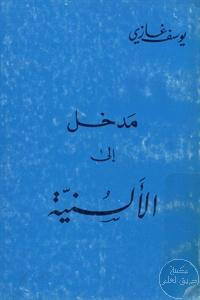 يوسف غازي
مدخل
إلى
الألسنيّة
مكتبة
طريق العلم